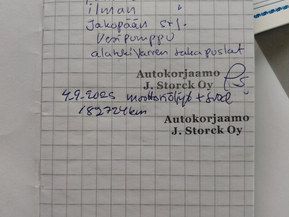 ilman "
Jakopään srj.
Vesipumppu
alatukivarren takapuslat
Autokorjaamo
J. Storck Oy
4.9.2025 moottoriöljyt + suod
182724km
Autokorjaamo
J. Storck Oy